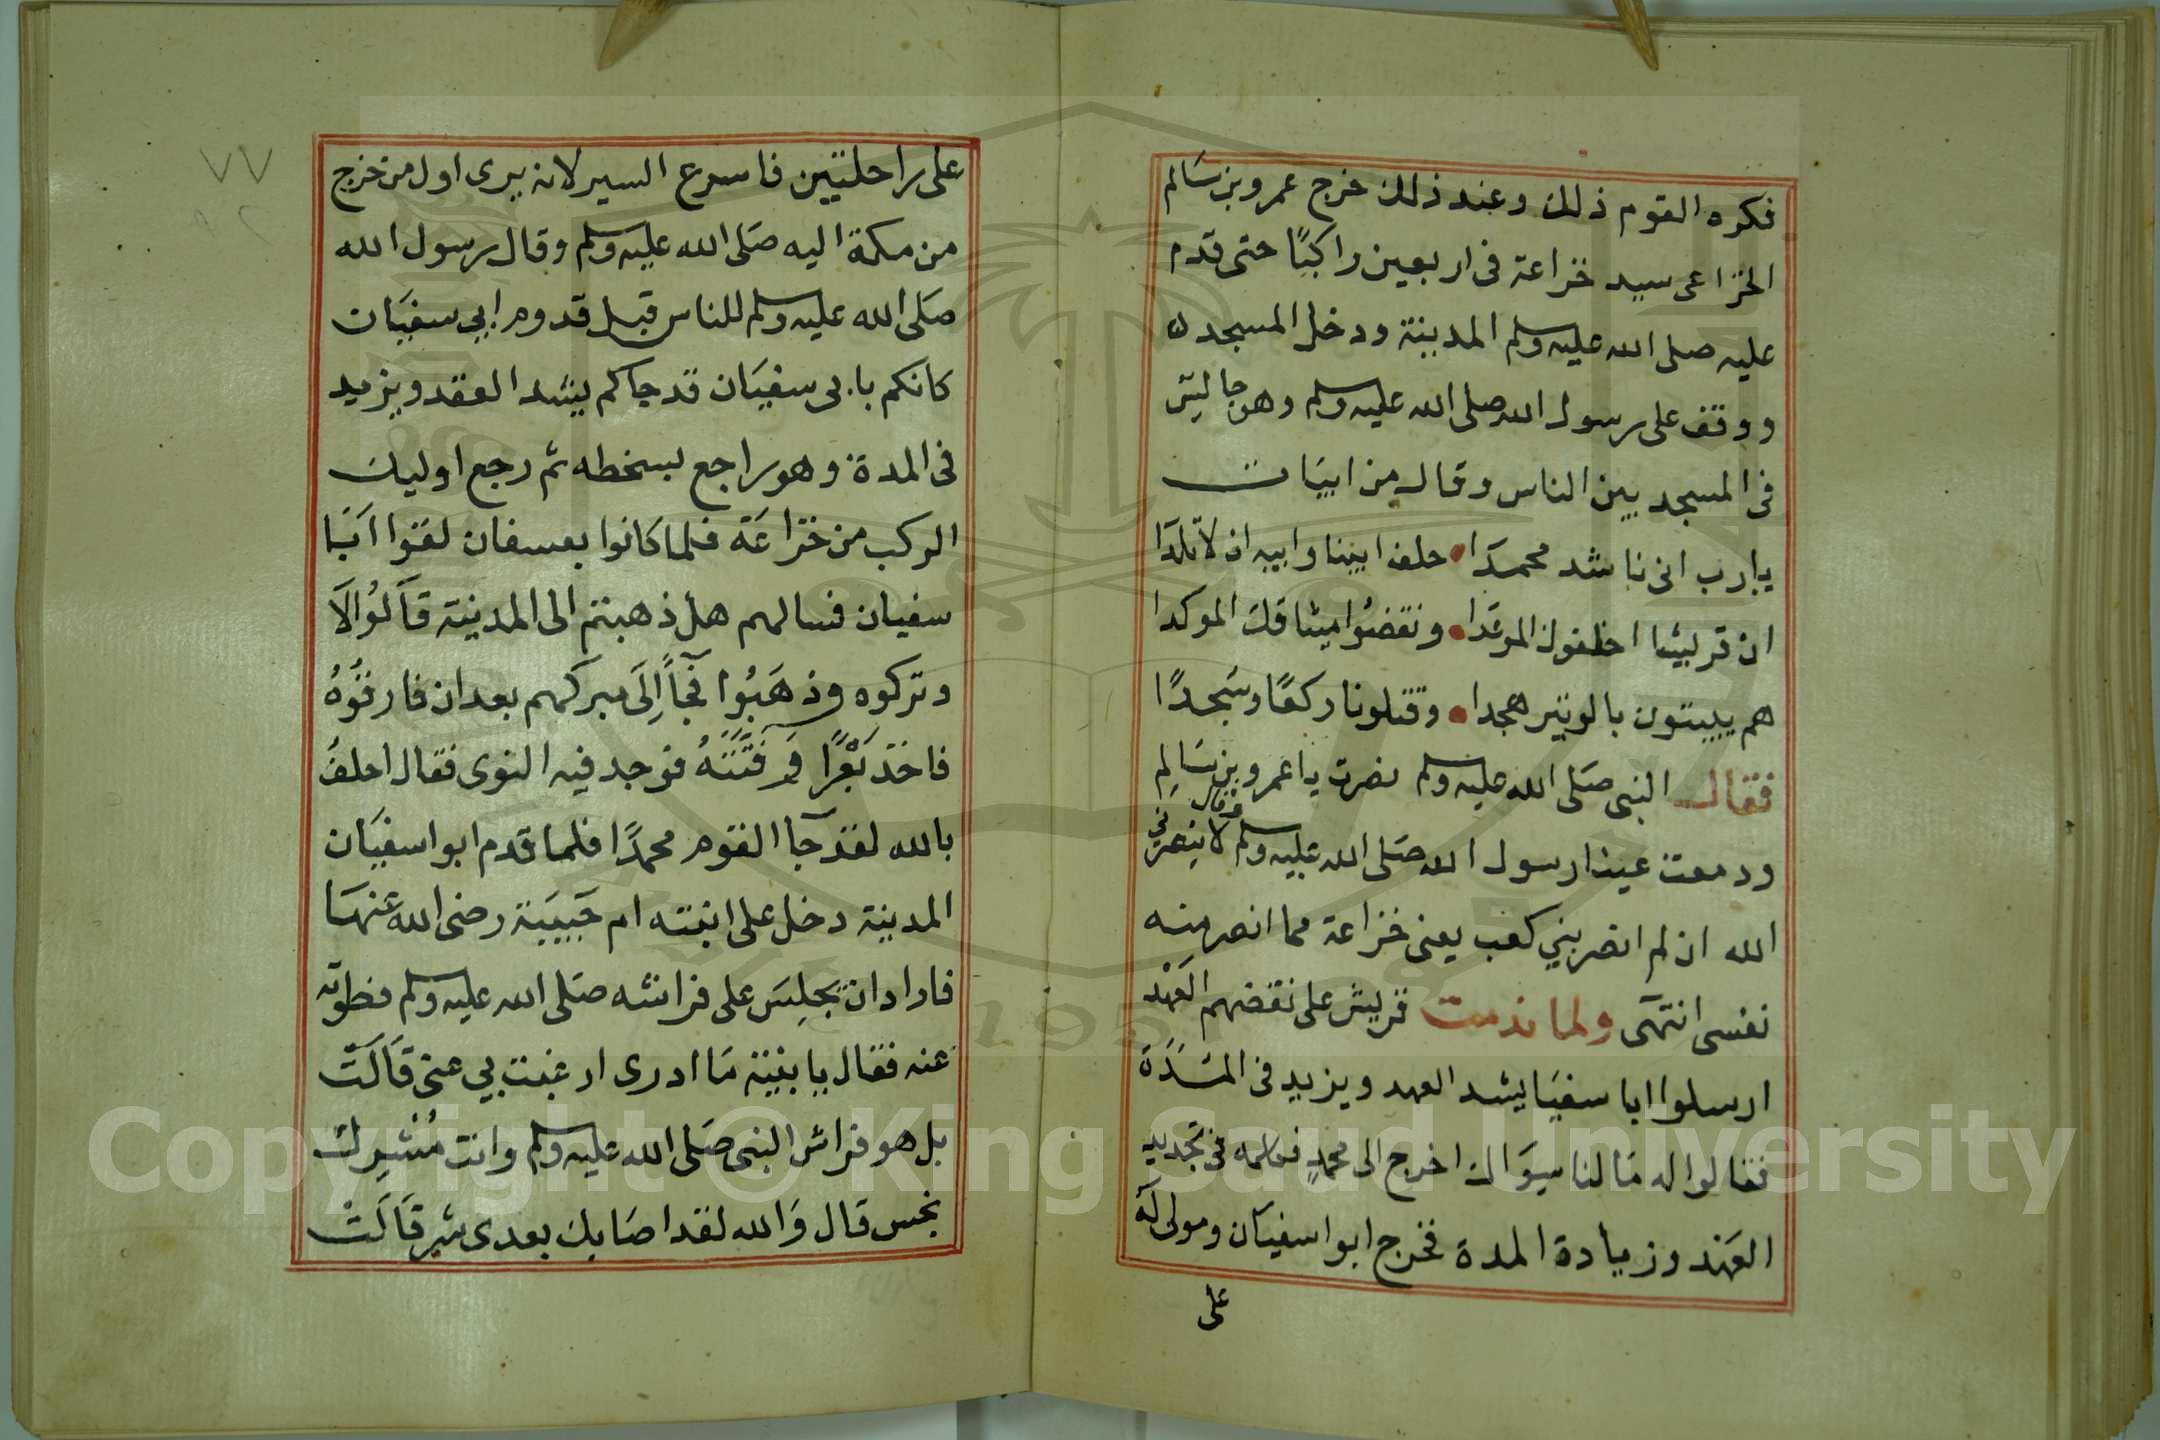 فكره القوم ذلك وعند ذلك خرج عمرو بن سَالم
الخزاعى سيد خزاعة فى اربعين راكبًا حتى قدم
عليه صلى الله عليه وسلم المدينة ودخل المسجد
ووقف على رسول الله صلى الله عليه وسلم وهو جالس
فى المسجد بين الناس وقال من ابيات
يارب انى ناشد محمدَا حلف ابينا وابيه الاتلدا
ان قريشا اخلفوك الموعَدا ونقضُوا ميثاقك الموكدا
هم يبيتون بالوتير هجدا وقتلونا ركعًا وسَجدًا
فقال النبى صَلى الله عليه وسلم نصرت يا عمرو بن سَالِم
ودمعت عينا رسول الله صَلى الله عليه وسلم وقال لا ينصرني
الله ان لم انصر بني كعب يعنى خزاعة مما انصر منه
نفسى انتهى ولما ندمت قريش على نقضهم العَهْد
ارسلوا ابا سفيَا ليشد العهد ويزيد فى المُدَة
فقالوا له مَا لنا سِوَاك اخرج الى محمدٍ فكلمه فى تجديد
العهَد وزيادة المدة فخرج ابوا سفيَان ومولى له
على
٧٧
على راحلتين فاسرع السير لانه يرى اول من خرج
من مكة اليه صَلى الله عليه وسلم وقال رسول الله
صَلى الله عليه وسلم للناس قبل قدوم ابي سفيَان
كانكم بابى سفيَان قد جاكم يشد العقد ويزيد
فى المدة وهو راجع بسخطه ثم رجع اوليك
الركب من خزاعَة فلما كانوا بعسفان لقوا اَبَا
سفيان فسالهم هل ذهبتم الى المدينة قاَلوُا لاَ
وتركوه وذهَبُوا فجاَ اِلَى مبركهم بعد ان فارقوُهُ
فاخذ بَعْرًا وَفَتَّتَهُ فوجد فيه النوى فقال احلفُ
بالله لقد جَا القوم محمدًا فلما قدم ابوا سفيَان
المدينة دخل على ابنته ام حَبيبَة رضى الله عَنهَا
فاراد ان يجلِسَ على فراشه صَلى الله عليه وسلم فطوته
عنه فقال يا بنية مَا ادرى ارغبت بي عنى قَالَتْ
بل هو فراش النبى صَلى الله عليه وسلم وانت مُشرِك
نجس قال وَالله لقد اصَابك بعدى شر قَالَتْ
Copyright © King Saud University
1957